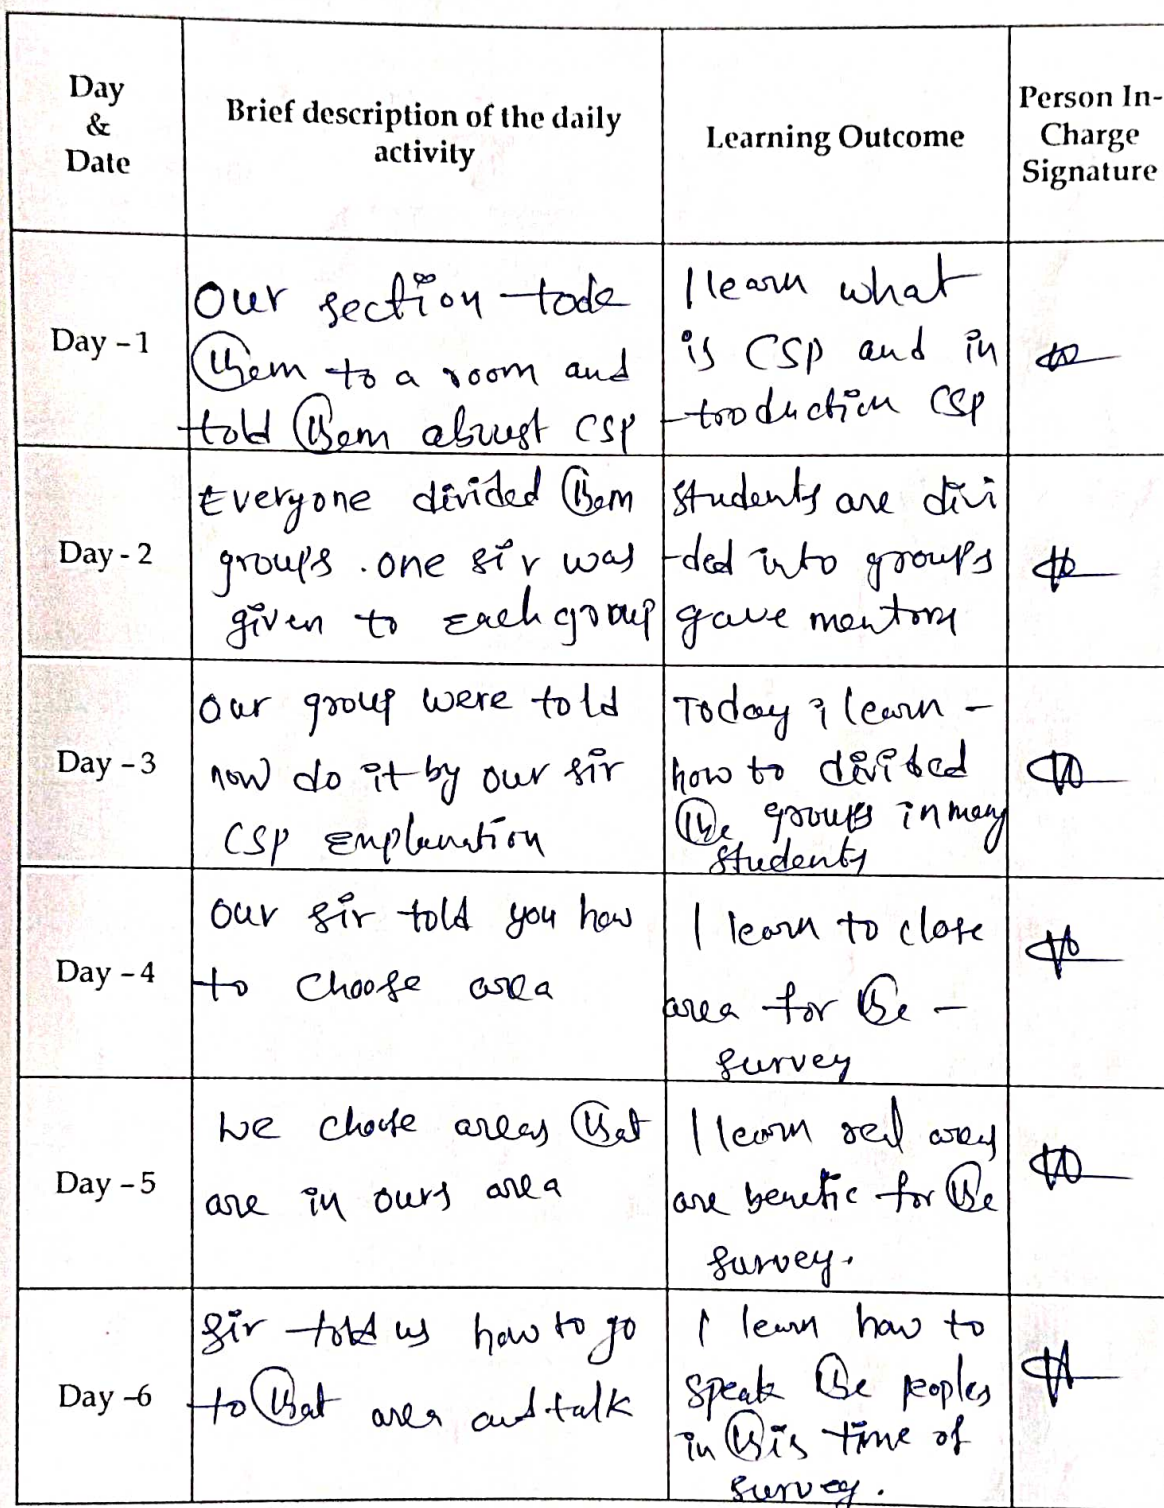 Day
&
Date
Brief description of the daily
activity
Learning Outcome
Person In-
Charge
Signature
Day - 1
Our section took
them to a room and
told them about CSP
I learn what
is CSP and in
troduction CSP
Day - 2
Everyone divided them
groups. one sir was
given to each group
students are divi
-ded into groups
gave mentors
Day - 3
Our group were told
now do it by our sir
CSP Emplanation
Today i learn -
how to divided
the groups in many
students
Day - 4
our sir told you how
to choose area
I learn to close
area for the -
survey
Day - 5
we choose areas that
are in ours area
I learn areas
are for the
survey.
Day -6
Sir told us how to go
to that area and talk
I learn how to
speak the peoples
in this time of
survey.